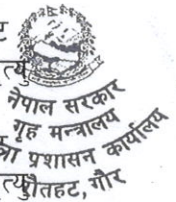 त्यु
नेपाल सरकार
गृह मन्त्रालय
प्रशासन कार्यालय
त्यु
रौतहट, गौर